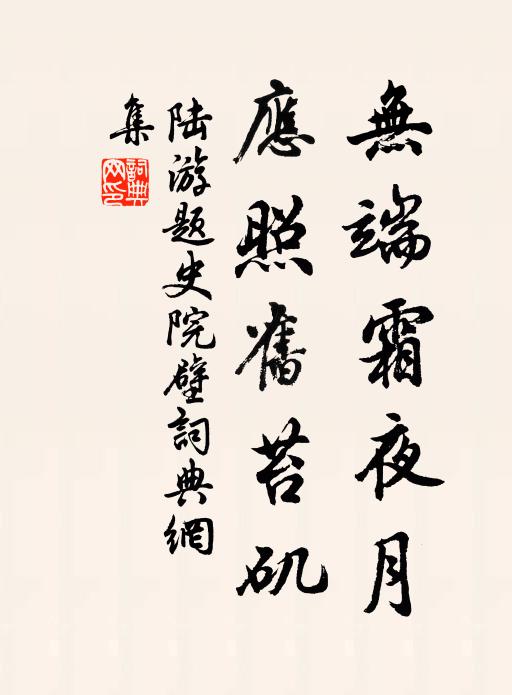 無端霜夜月
應照舊苔矶
陆游题史院壁詞典網
集
詞典
网印